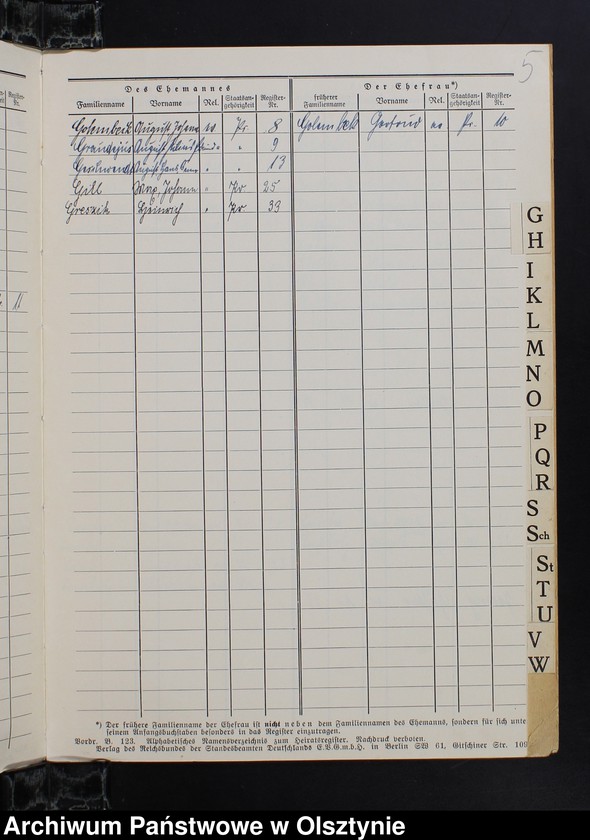 5
Des Ehemannes
Der Ehefrau*)
Familienname Vorname Rel. Staatsan-gehörigkeit Register-Nr. früherer Familienname Vorname Rel. Staatsan-gehörigkeit Register-Nr.
Golembek August Johann Pr. 8 Golembek Gertrud ev. Pr. 10
August " 9
August " 13
Max Johann " Pr 25
Heinrich " Pr 33
11
G
H
I
K
L
M
N
O
P
Q
R
S
Sch
St
T
U
V
W
*) Der frühere Familienname der Ehefrau ist nicht neben dem Familiennamen des Ehemanns, sondern für sich unte
seinem Anfangsbuchstaben besonders in das Register einzutragen.
Vordr. B. 123. Alphabetisches Namensverzeichnis zum Heiratsregister. Nachdruck verboten.
Verlag des Reichsbundes der Standesbeamten Deutschlands E.V.G.m.b.H. in Berlin SW 61, Gitschiner Str. 109
Archiwum Państwowe w Olsztynie